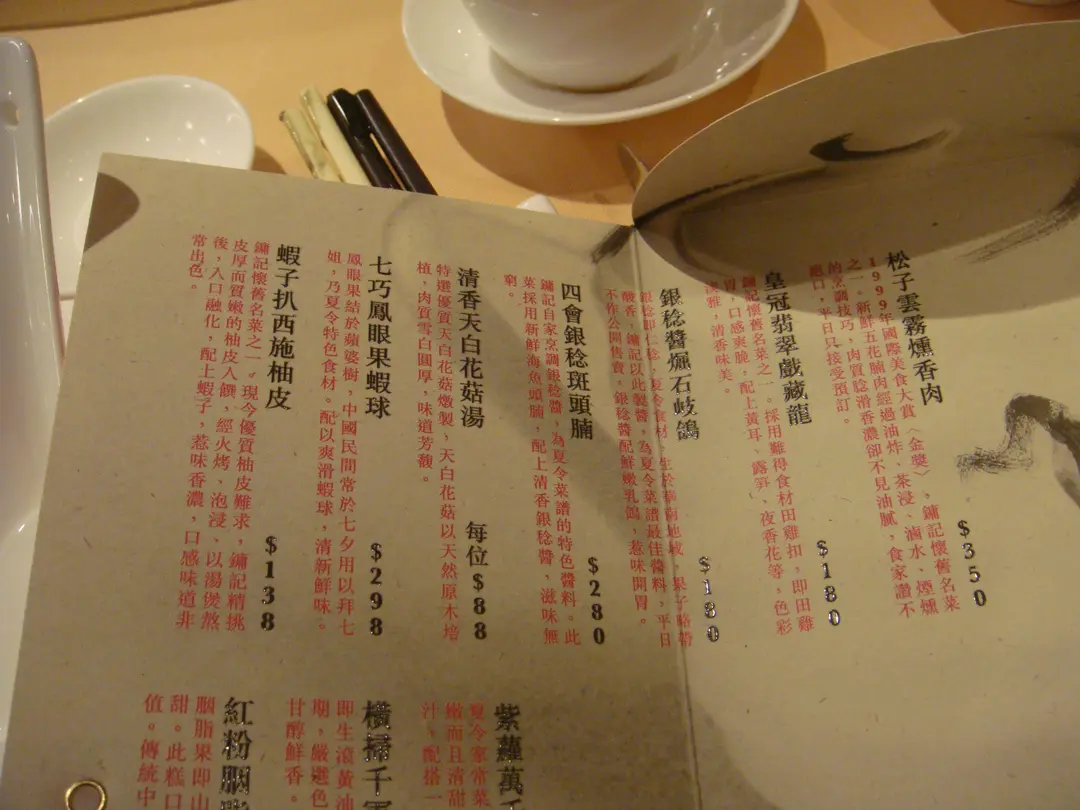 松子雲霧燻香肉
$350
1999年國際美食大賞〈金獎〉，鏞記懷舊名菜
之一。新鮮五花腩肉經過油炸、茶浸、滷水、煙燻
的烹調技巧，肉質腍滑香濃卻不見油膩，食家讚不
絕口，平日只接受預訂。
皇冠翡翠戲藏龍
$180
鏞記懷舊名菜之一。採用難得食材田雞扣，即田雞
胃，口感爽脆，配上黃耳、露笋、夜香花等，色彩
淡雅，清香味美。
銀稔醬焗石岐鴿
$180
銀稔即仁稔，夏令食材，生於華南地域，果子略帶
酸香，鏞記以此製醬，為夏令菜譜最佳醬料，平日
不作公開售賣，銀稔醬配鮮嫩乳鴿，惹味開胃。
四會銀稔斑頭腩
$280
鏞記自家烹調銀稔醬，為夏令菜譜的特色醬料。此
菜採用新鮮海魚頭腩，配上清香銀稔醬，滋味無
窮。
清香天白花菇湯
每位$88
特選優質天白花菇燉製，天白花菇以天然原木培
植，肉質雪白圓厚，味道芳馥。
七巧鳳眼果蝦球
$298
鳳眼果結於蘋婆樹，中國民間常於七夕用以拜七
姐，乃夏令特色食材。配以爽滑蝦球，清新鮮味。
蝦子扒西施柚皮
$138
鏞記懷舊名菜之一。現今優質柚皮難求，鏞記精挑
皮厚而質嫩的柚皮入饌，經火烤、泡浸、以湯煲熬
後，入口融化，配上蝦子，惹味香濃，口感味道非
常出色。
紫蘿萬
夏令家常菜
嫩而且清甜
汁，配搭一
橫掃千
即生滾黃油
期，嚴選色
甘醇鮮香。
紅粉胭
胭脂果即山
甜。此糕口
值。傳統中